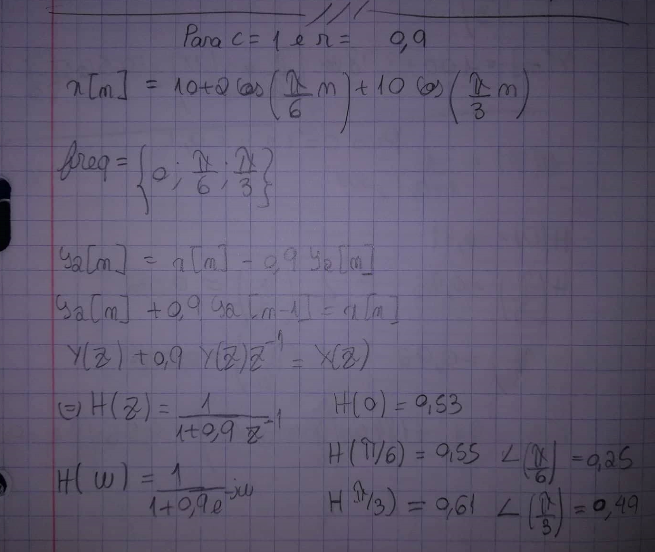 Para c = 1 e r = 0,9
x[n] = 10+2 cos(π/6 n) + 10 cos(π/3 n)
freq = {0; π/6; π/3}
y2[n] = x[n] - 0,9 y2[n]
y2[n] + 0,9 y2[n-1] = x[n]
Y(z) + 0,9 Y(z)z⁻¹ = X(z)
(=) H(z) = 1/(1+0,9 z⁻¹)
H(0) = 0,53
H(π/6) = 0,55 ∠(π/6) = 0,25
H(ω) = 1/(1+0,9e^-jω)
H(π/3) = 0,61 ∠(π/3) = 0,49